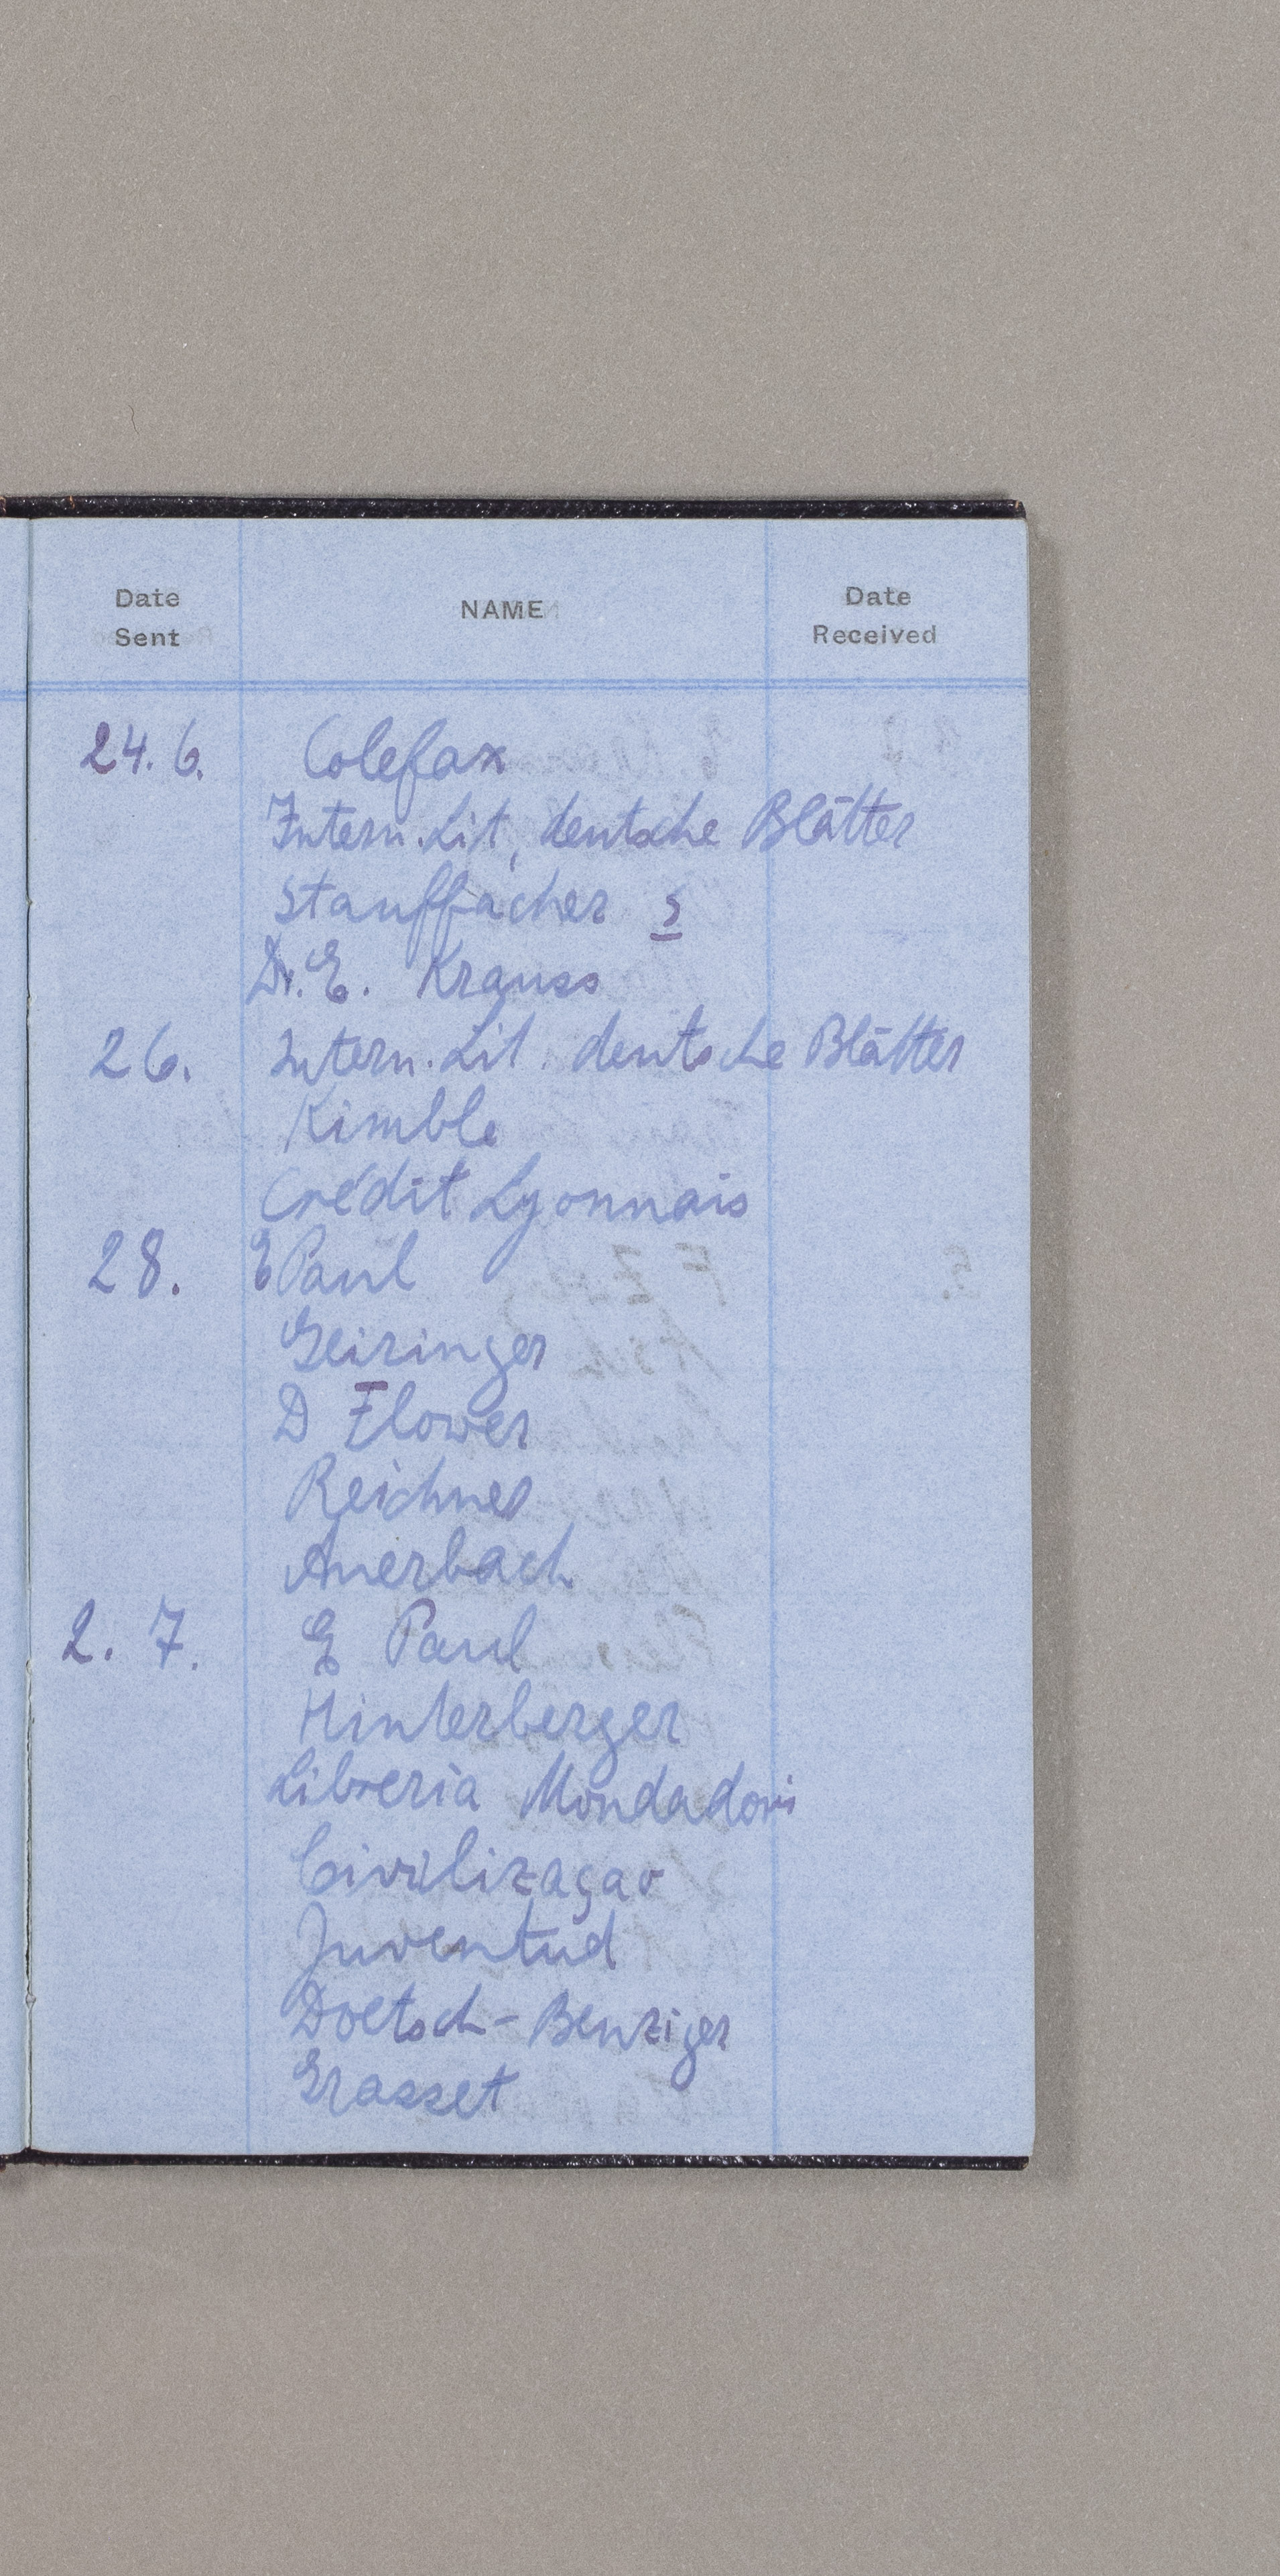 Date Sent NAME Date Received
24. 6. Colefax
Intern. Lit, deutsche Blätter
Stauffacher s
Dr. E. Krauss
26. Intern. Lit. deutsche Blätter
Kimble
Crédit Lyonnais
28. E Paul
Geiringer
D Flower
Reichner
Auerbach
2. 7. E Paul
Hinterberger
Libreria Mondadori
Civilizaçao
Juventud
Doetsch-Benziger
Grasset